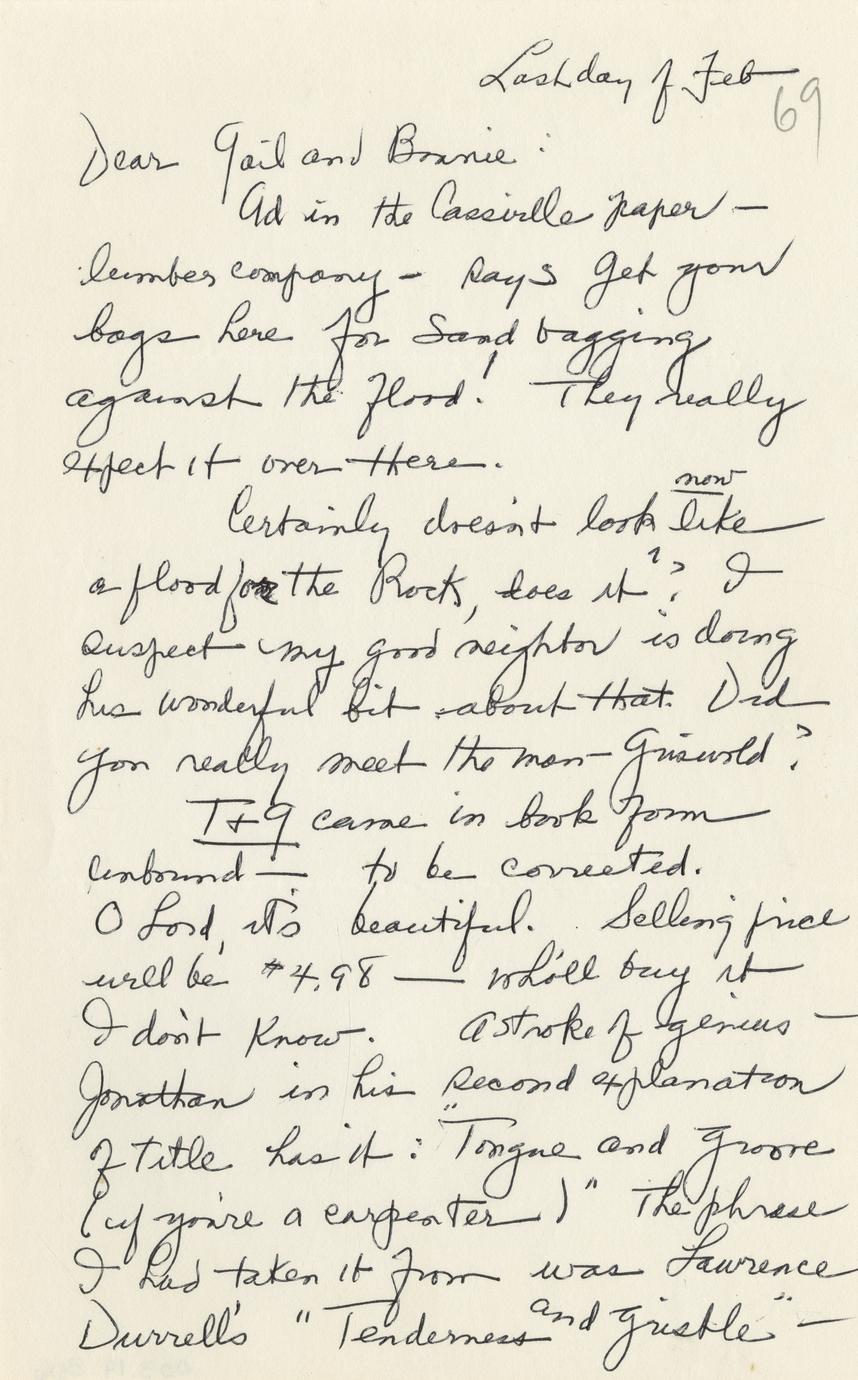 Last day of Feb
69
Dear Gail and Bonnie :
Ad in the Cassville paper —
lumber company — says Get your
bags here for Sand bagging
against the flood! They really
expect it over there.
now
Certainly doesn't look like
a flood for the Rock, does it?? I
suspect my good neighbor is doing
his wonderful bit about that. Did
you really meet the man — Griswold?
T&G came in book form
unbound — to be corrected.
O Lord, it's beautiful. Selling price
will be $4.98 — who'll buy it
I don't know. A stroke of genius —
Jonathan in his second explanation
of title has it : "Tongue and Groove
(if you're a carpenter)" The phrase
I had taken it from was Lawrence
Durrell's "Tenderness and Gristle" —